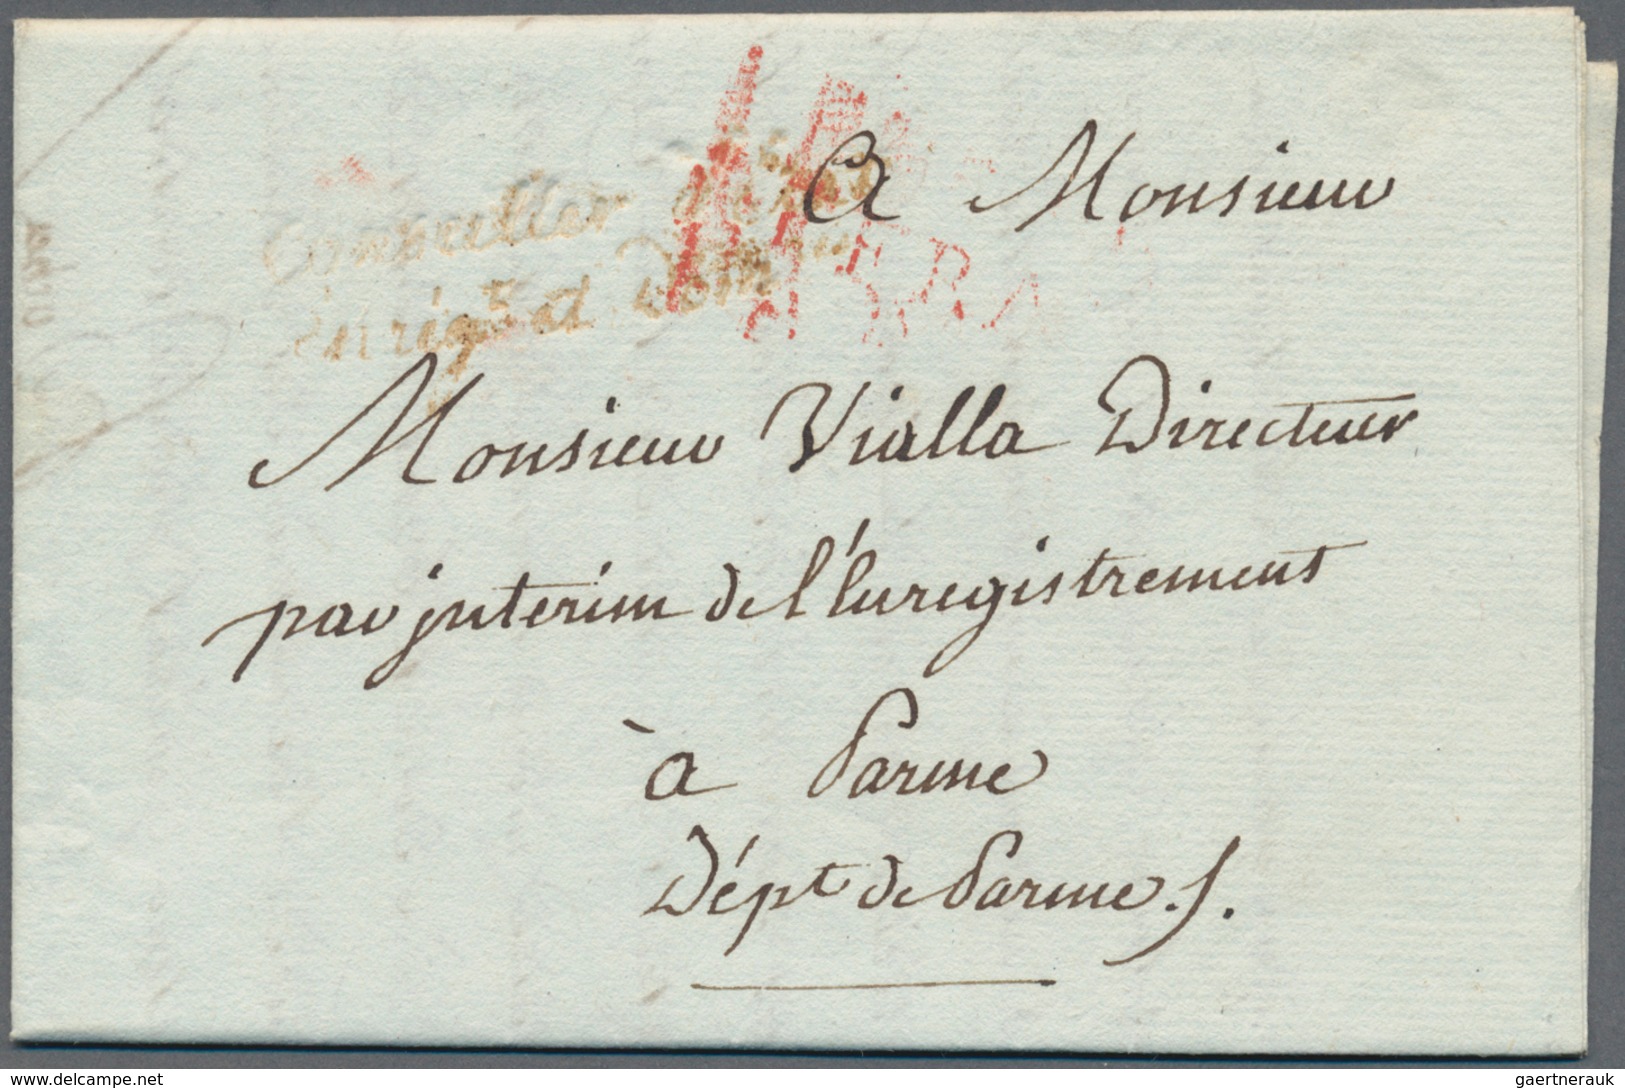 Conseiller d'état
Enreg.t et dom
A Monsieur
Monsieur Vialla Directeur
par jnterim de l'Enregistrement
à Parme
Dépt de Parme ./.
gaertnerauk